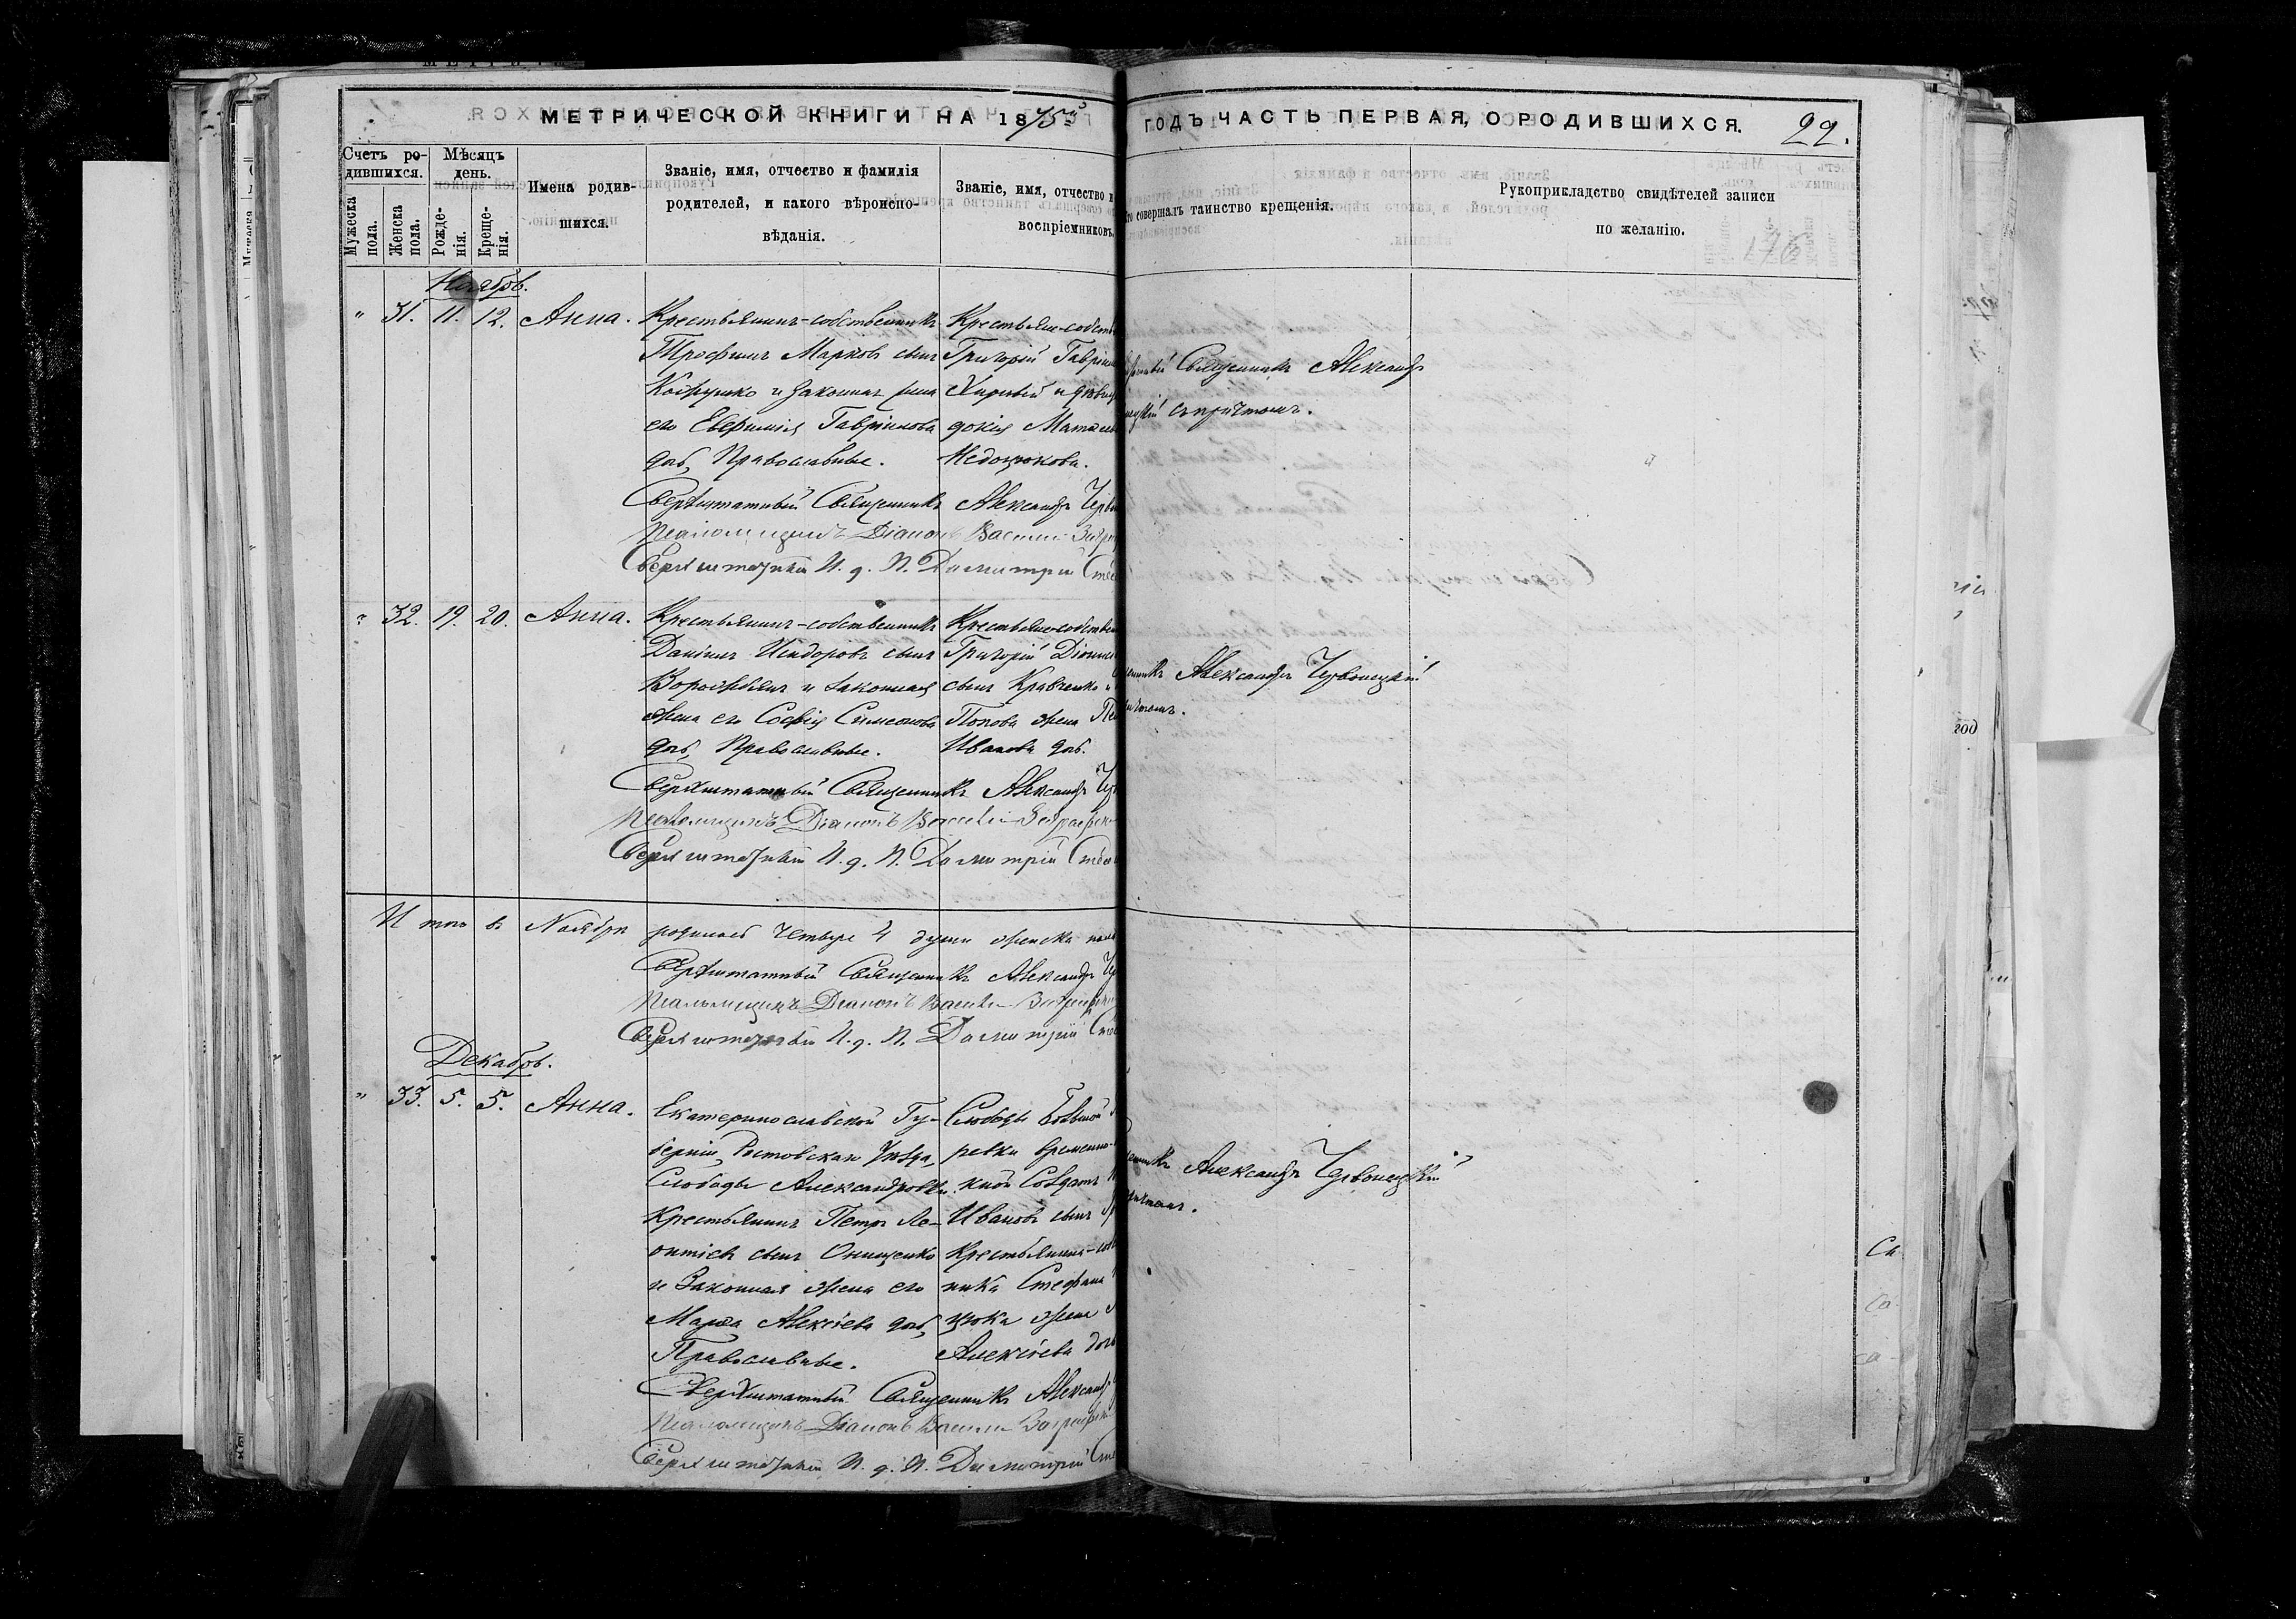 МЕТРИЧЕСКОЙ КНИГИ НА 1875 ГОДЪ ЧАСТЬ ПЕРВАЯ, О РОДИВШИХСЯ. 22.
Счетъ родившихся.
Мужеска пола.
Женска пола.
Мѣсяцъ день.
Рожде-нія.
Креще-нія.
Имена родив-
шихся.
Званіе, имя, отчество и фамилія
родителей, и какого вѣроиспо-
вѣданія.
Званіе, имя, отчество и
воспріемниковъ.
совершалъ таинство крещенія.
Рукоприкладство свидѣтелей записи
по желанію.
176
Ноябрь.
" 31. 11. 12. Анна.
Крестьянинъ-собственникъ
Трофимъ Марковъ сынъ
и законная жена
его Евфимія Гавріилова
дочь, Православные.
Крестьяне-собств
Григорій Гавріил
и девица
докія
Недоцюкова.
Священникъ Александр
съ причтомъ.
Сверхштатный Священникъ Александръ Черво
Псаломщикъ Діаконъ Василій
Сверхштатный И. д. П. Димитрій
" 32. 19. 20. Анна.
Крестьянинъ-собственникъ
Даніилъ Исидоровъ сынъ
и законная
жена его Софія Симеонова
дочь, Православные.
Крестьяне-собствен
Григорій
сынъ Кравченко и
Попова жена
Иванова дочь.
Александръ Червонецкій
Сверхштатный Священникъ Александръ
Псаломщикъ Діаконъ Василій
Сверхштатный И. д. П. Димитрій
Итого въ Ноябрѣ родилось четыре 4 души женска пола
Сверхштатный Священникъ Александръ
Псаломщикъ Діаконъ Василій
Сверхштатный И. д. П. Димитрій
Декабрь.
" 33. 5. 5. Анна.
Екатеринославской Гу-
берніи, Ростовскаго Уѣзда,
Слободы Александровки
Крестьянинъ Петръ Ле-
онтіевъ сынъ Онищенко
и законная жена его
Марѳа Алексіева дочь,
Православные.
Слободы Большой
ревки временно-
кной Солдатъ
Ивановъ сынъ
Крестьянина-соб
ника Стефана
цюка жена
Алексіева дочь
Александръ Червонецкій
Сверхштатный Священникъ Александръ
Псаломщикъ Діаконъ Василій
Сверхштатный И. д. П. Димитрій